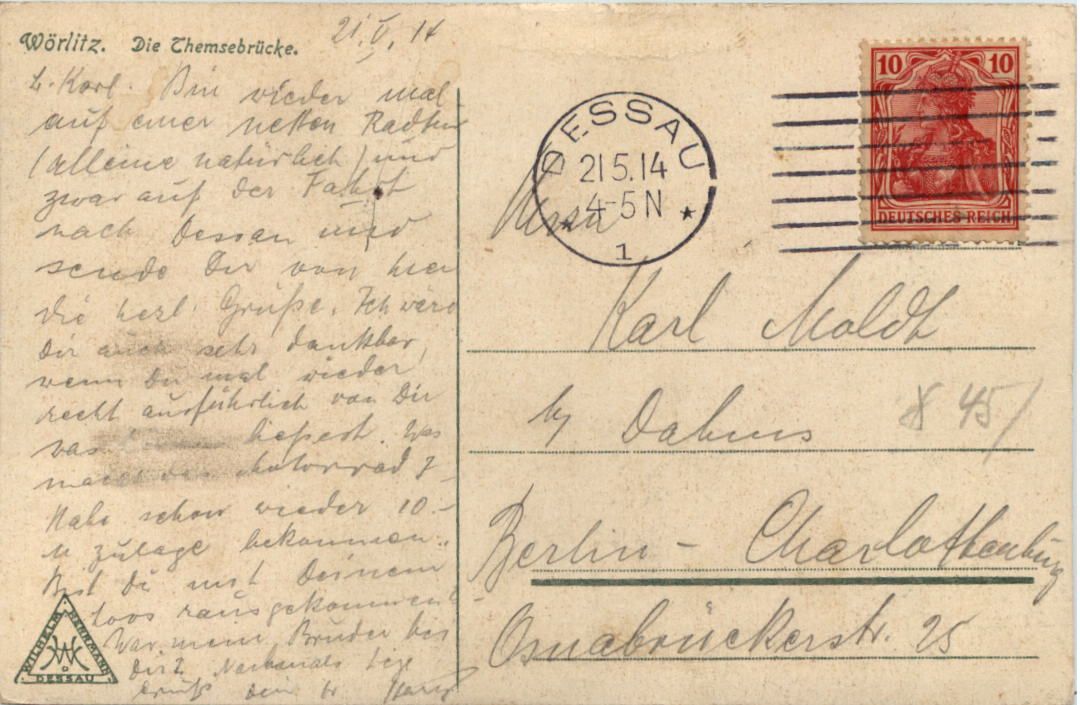 Wörlitz. Die Themsebrücke.
21. V. 14
L. Karl. Bin wieder mal
auf einer netten Radtour
(alleine natürlich) und
zwar auf der Fahrt
nach Dessau und
sende Dir von hier
die herzl. Grüße. Ich wäre
Dir auch sehr dankbar,
wenn Du mal wieder
recht ausführlich von Dir
was liesest. Was
macht das Motorrad?
Habe schon wieder 10.-
M zulage bekommen.
Bist Du mit Deinem
loos rausgekommen?
War mein Bruder bei
Dir? Nochmals
Grüß Dein
WILHELM HERRMANN
DESSAU
DESSAU
21.5.14
4-5 N
1
10 10
DEUTSCHES REICH
Karl Moldt
b/ Dahms
45
Berlin - Charlottenburg
Osnabrückerstr. 25